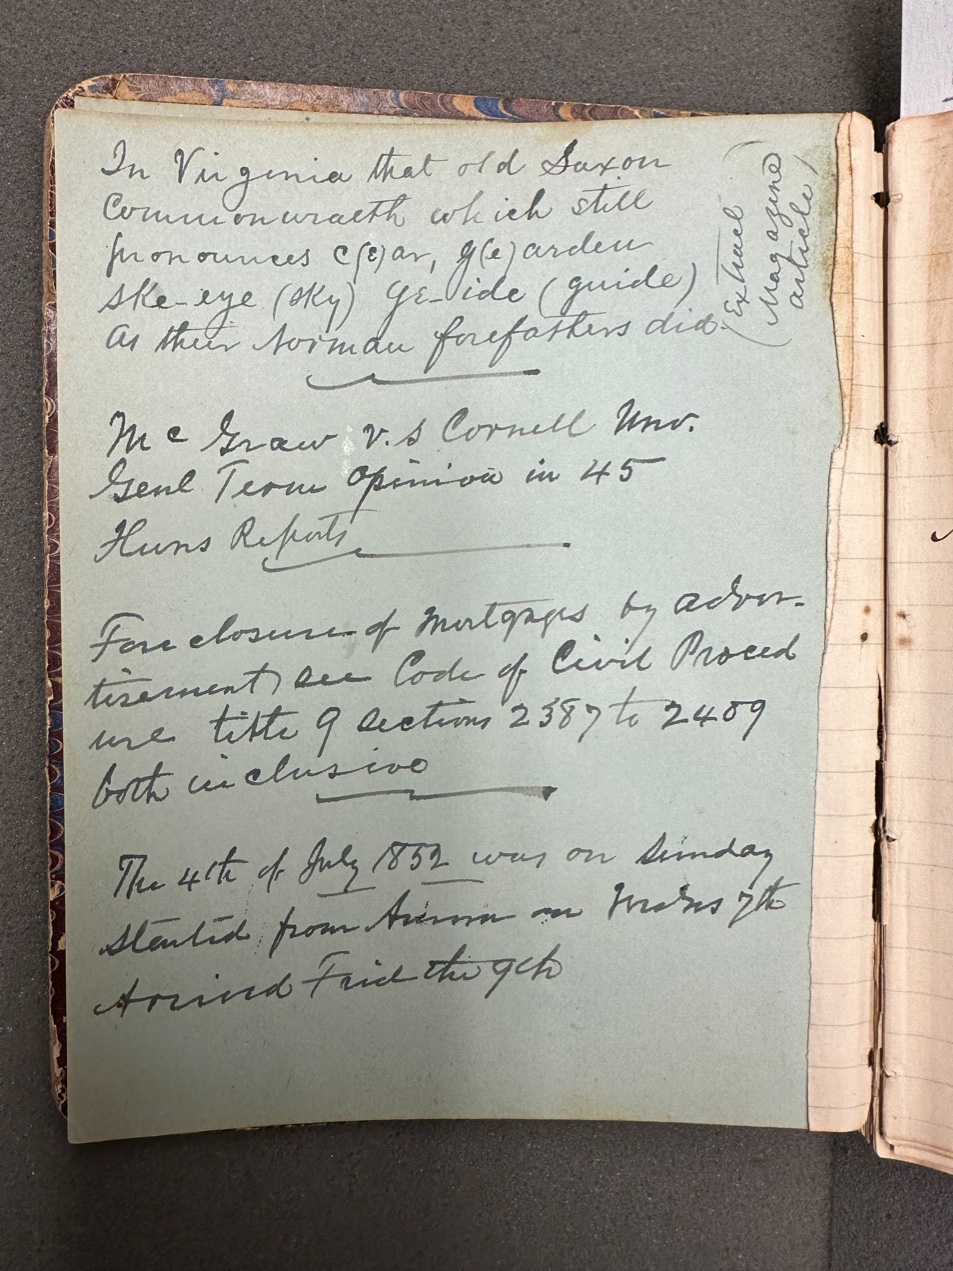 In Virginia that old Saxon
Commonwraeth which still
pronounces c(e)ar, g(e)arden
ske-eye (sky) ge-ide (guide)
as their Norman forefathers did.
(Extract
Magazine
article)
Mc Graw v.s Cornell Unv.
Genl Term Opinion in 45
Huns Reports
Foreclosure of Mortgages by adver-
tisement, see Code of Civil Proced
ure title 9 sections 2387 to 2409
both inclusive
The 4th of July 1852 was on Sunday
Started from Aurora on Wednes 7th
Arrived Frid the 9th